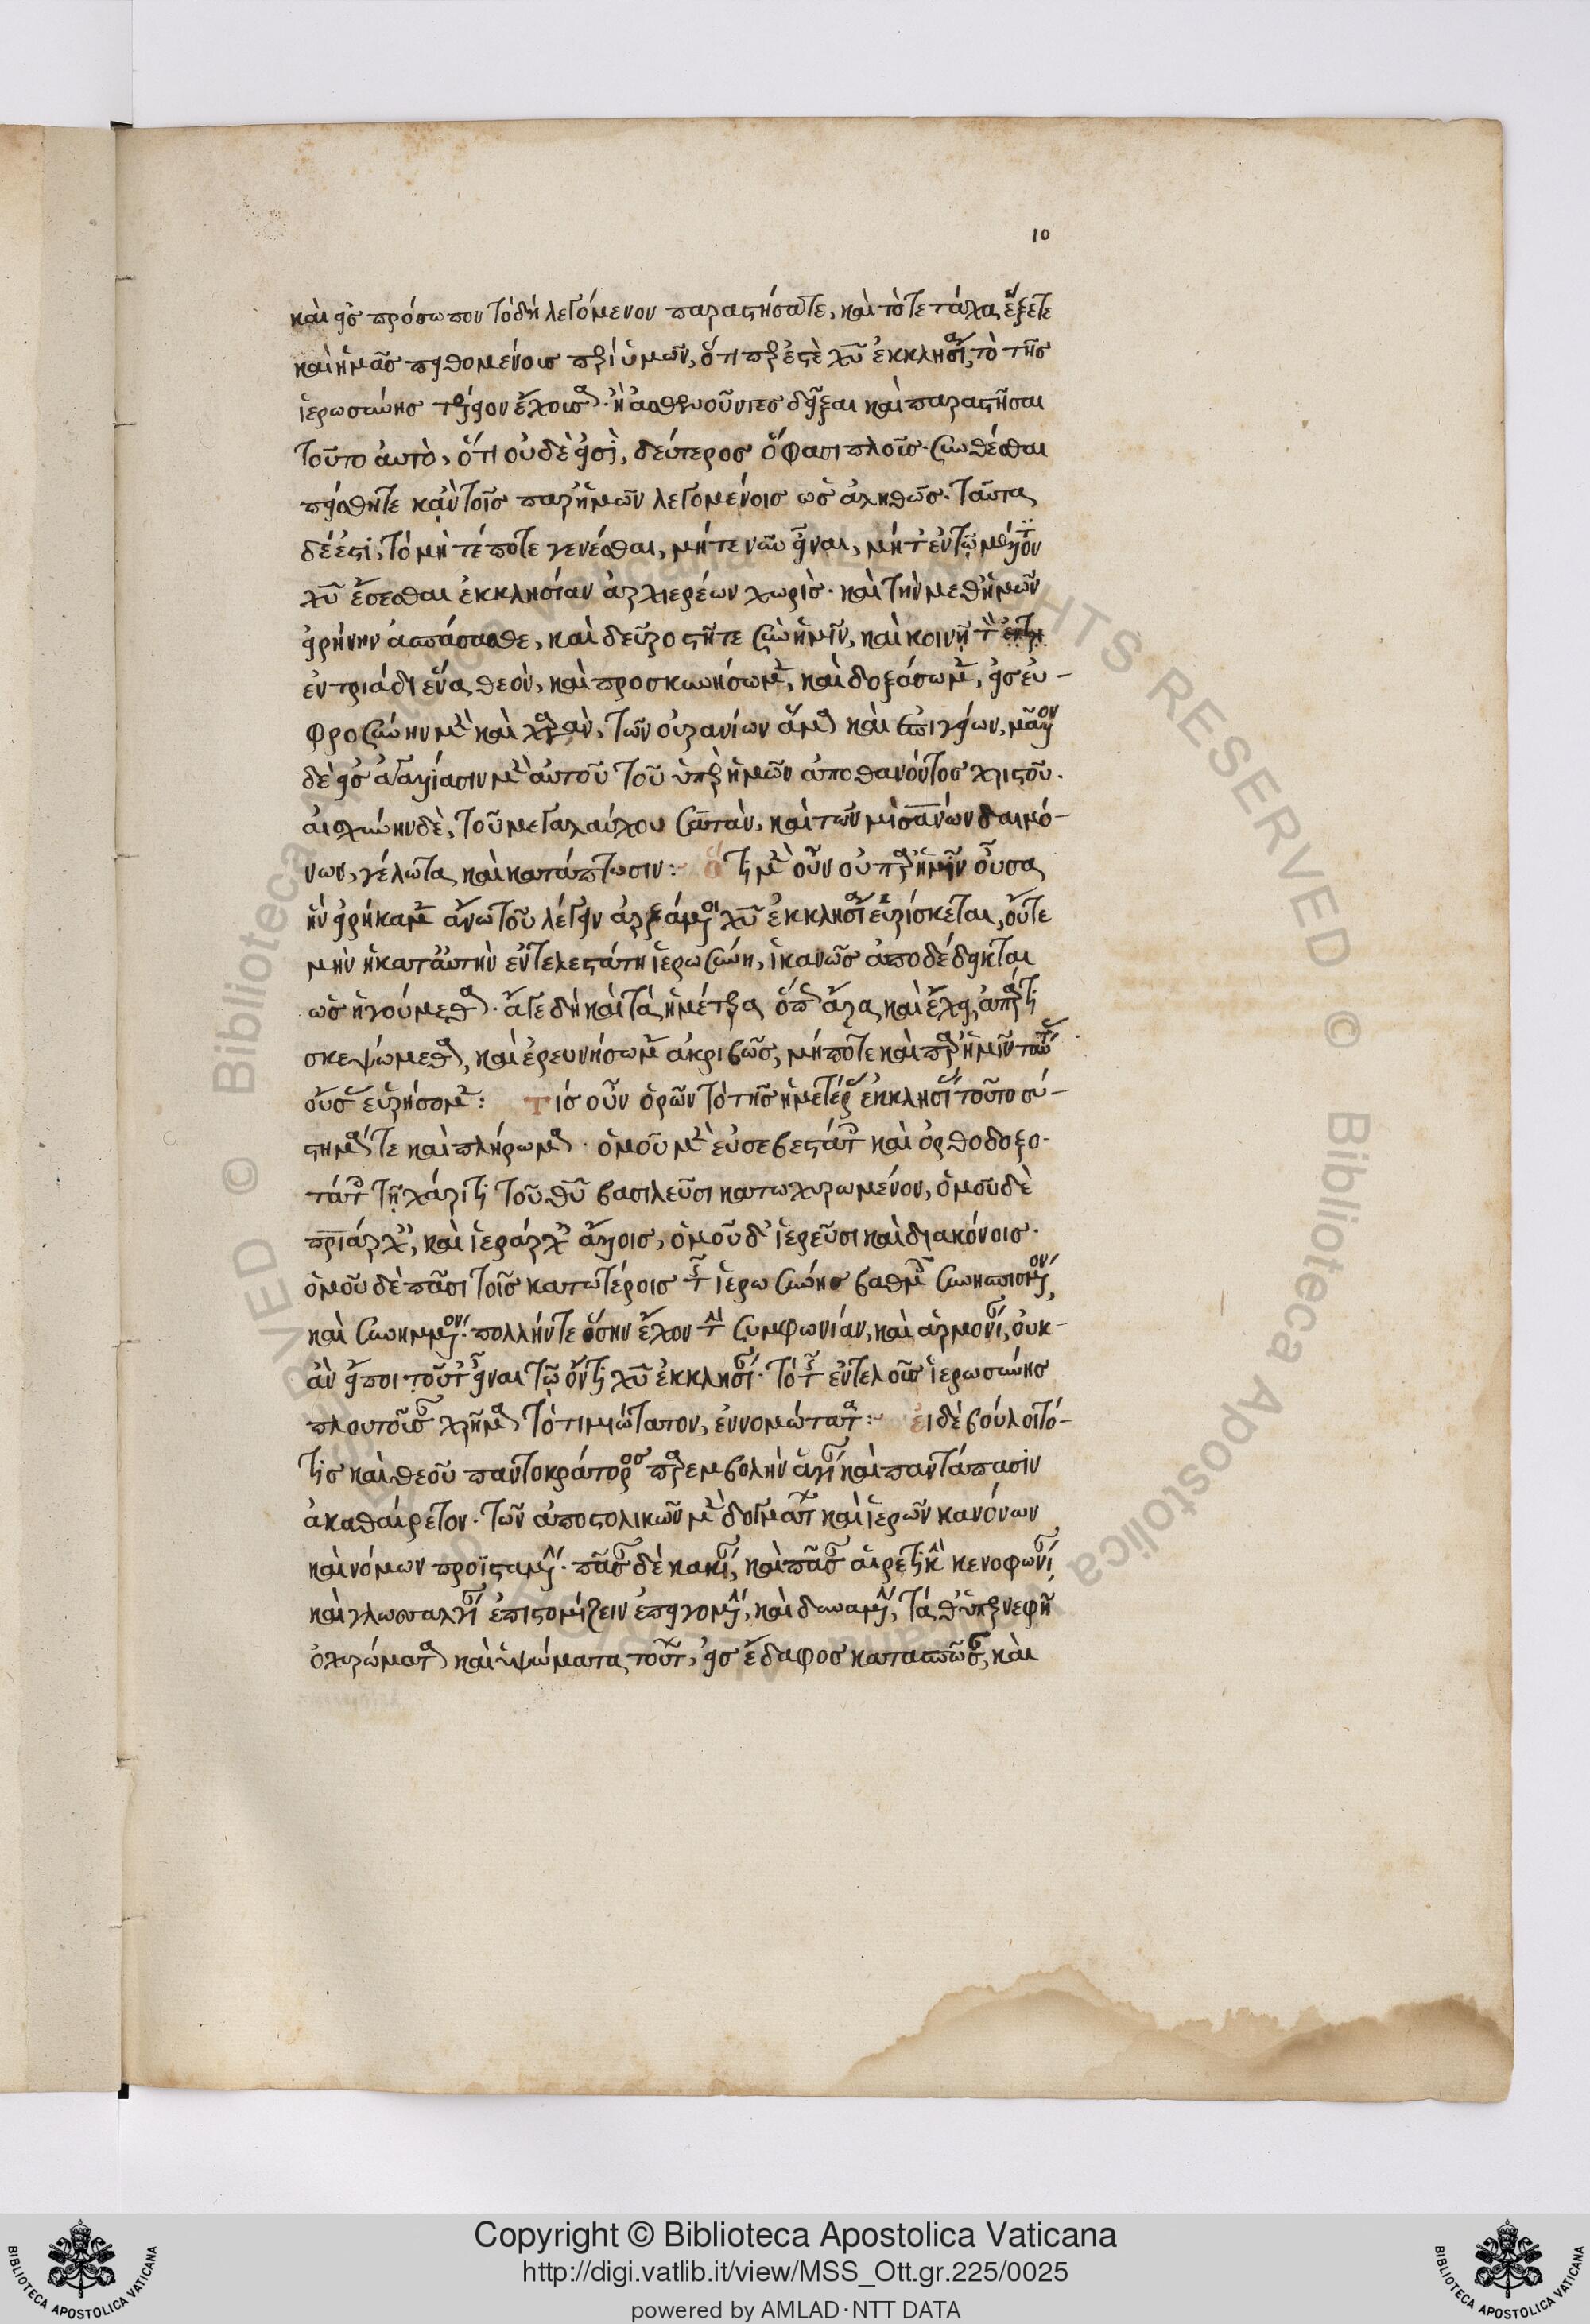 10
καὶ εἰς πρόσωπον τὸ δὴ λεγόμενον παραστήσατε, καὶ τότε τάχα ἕξετε
καὶ ἡμᾶς πειθομένοις περὶ ὑμῶν, ὅτι περ ἐστὲ χῦ ἐκκλησία, τὸ τῆς
ἱερωσύνης ἔχουσα. ἢ ἀσθενοῦντες δεῖξαι καὶ παραστῆσαι
τοῦτο αὐτὸ, ὅτι οὐδὲ εἰσὶ, δεύτερος ὅ φασι πλοῦς. συνθέσθαι
πείσθητε κἀν τοῖς παρ' ἡμῶν λεγομένοις ὡς ἀληθῶς. ταῦτα
δέ ἐστι, τὸ μὴ τέ ποτε γενέσθαι, μήτε νῦν εἶναι, μήτ' ἐν τῷ μέλλοντι
χῦ ἔσεσθαι ἐκκλησίαν ἀρχιερέων χωρίς. καὶ τὴν μεθ' ἡμῶν
εἰρήνην ἀσπάσασθε, καὶ δεῦρο στῆτε σὺν ἡμῖν, καὶ κοινῇ τὸν
ἐν τριάδι ἕνα θεὸν, καὶ προσκυνήσωμεν, καὶ δοξάσωμεν, εἰς εὐ-
φροσύνην μὲν καὶ χαρὰν, τῶν οὐρανίων ἅμα καὶ ἐπιγείων, μᾶλλον
δὲ εἰς ἀγαλλίασιν μὲν αὐτοῦ τοῦ ὑπὲρ ἡμῶν ἀποθανόντος χριστοῦ.
αἰσχύνην δὲ, τοῦ μεγαλαύχου σατὰν, καὶ τῶν μισανων δαιμό-
νων, γέλωτα, καὶ κατάπτωσιν: ὅτι μὲν οὖν οὐ παρ' ἡμῖν οὖσα
ἣν εἰρήκαμεν ἄνω τοῦ λέγειν ἀρξάμενοι χῦ ἐκκλησία εὑρίσκεται, οὔτε
μὴν ἡ κατ' αὐτὴν ἐντελεστάτη ἱερωσύνη, ἱκανῶς ἀποδέδεικται
ὡς ἡγούμεθα. ἄγε δὴ καὶ τὰ ἡμέτερα ὅπη ἄρα καὶ ἔχει, ἀπάρτι
σκεψώμεθα, καὶ ἐρευνήσωμεν ἀκριβῶς, μήποτε καὶ παρ' ἡμῖν ταύτην
οὖσαν εὑρήσομεν: τίς οὖν ὁρῶν τὸ τῆς ἡμετέρας ἐκκλησίας τοῦτο σύ-
στημά τε καὶ πλήρωμα. ὁμοῦ μὲν εὐσεβεστάτοις καὶ ὀρθοδοξο-
τάτοις τῇ χάριτι τοῦ θῦ βασιλεῦσι κατωχυρωμένον, ὁμοῦ δὲ
πριάρχαις, καὶ ἱεράρχαις ἄλλοις, ὁμοῦ δ' ἱερεῦσι καὶ διακόνοις.
ὁμοῦ δὲ πᾶσι τοῖς κατωτέροις τῆς ἱερωσύνης βαθμοῖς συνησπισμένον,
καὶ συνημμένον. πολλήν τε ὅσην ἔχον τὴν συμφωνίαν, καὶ ἁρμονίαν, οὐκ
ἂν εἴποι τοῦτ' εἶναι τῷ ὄντι χῦ ἐκκλησίαν. τὸ τῆς ἐντελοῦς ἱερωσύνης
πλουτοῦσαν χρῆμα τὸ τιμιώτατον, ἐννομώτατα: εἰ δὲ βούλοιτό
τις καὶ θεοῦ παντοκράτορος παρεμβολὴν ἁγίαν καὶ παντάπασιν
ἀκαθαίρετον. τῶν ἀποστολικῶν μὲν δογμάτων καὶ ἱερῶν κανόνων
καὶ νόμων προϊσταμένην. πᾶσαν δὲ κακίαν, καὶ πᾶσαν αἱρετικὴν κενοφωνίαν,
καὶ γλωσσαλγίαν ἐπιστομίζειν ἐπειγομένην, καὶ δυναμένην, τά θ' ὑπερνεφῆ
ὀχυρώματα καὶ ὑψώματα τούτων, εἰς ἔδαφος κατασπῶσαν, καὶ
Copyright © Biblioteca Apostolica Vaticana
http://digi.vatlib.it/view/MSS_Ott.gr.225/0025
powered by AMLAD·NTT DATA